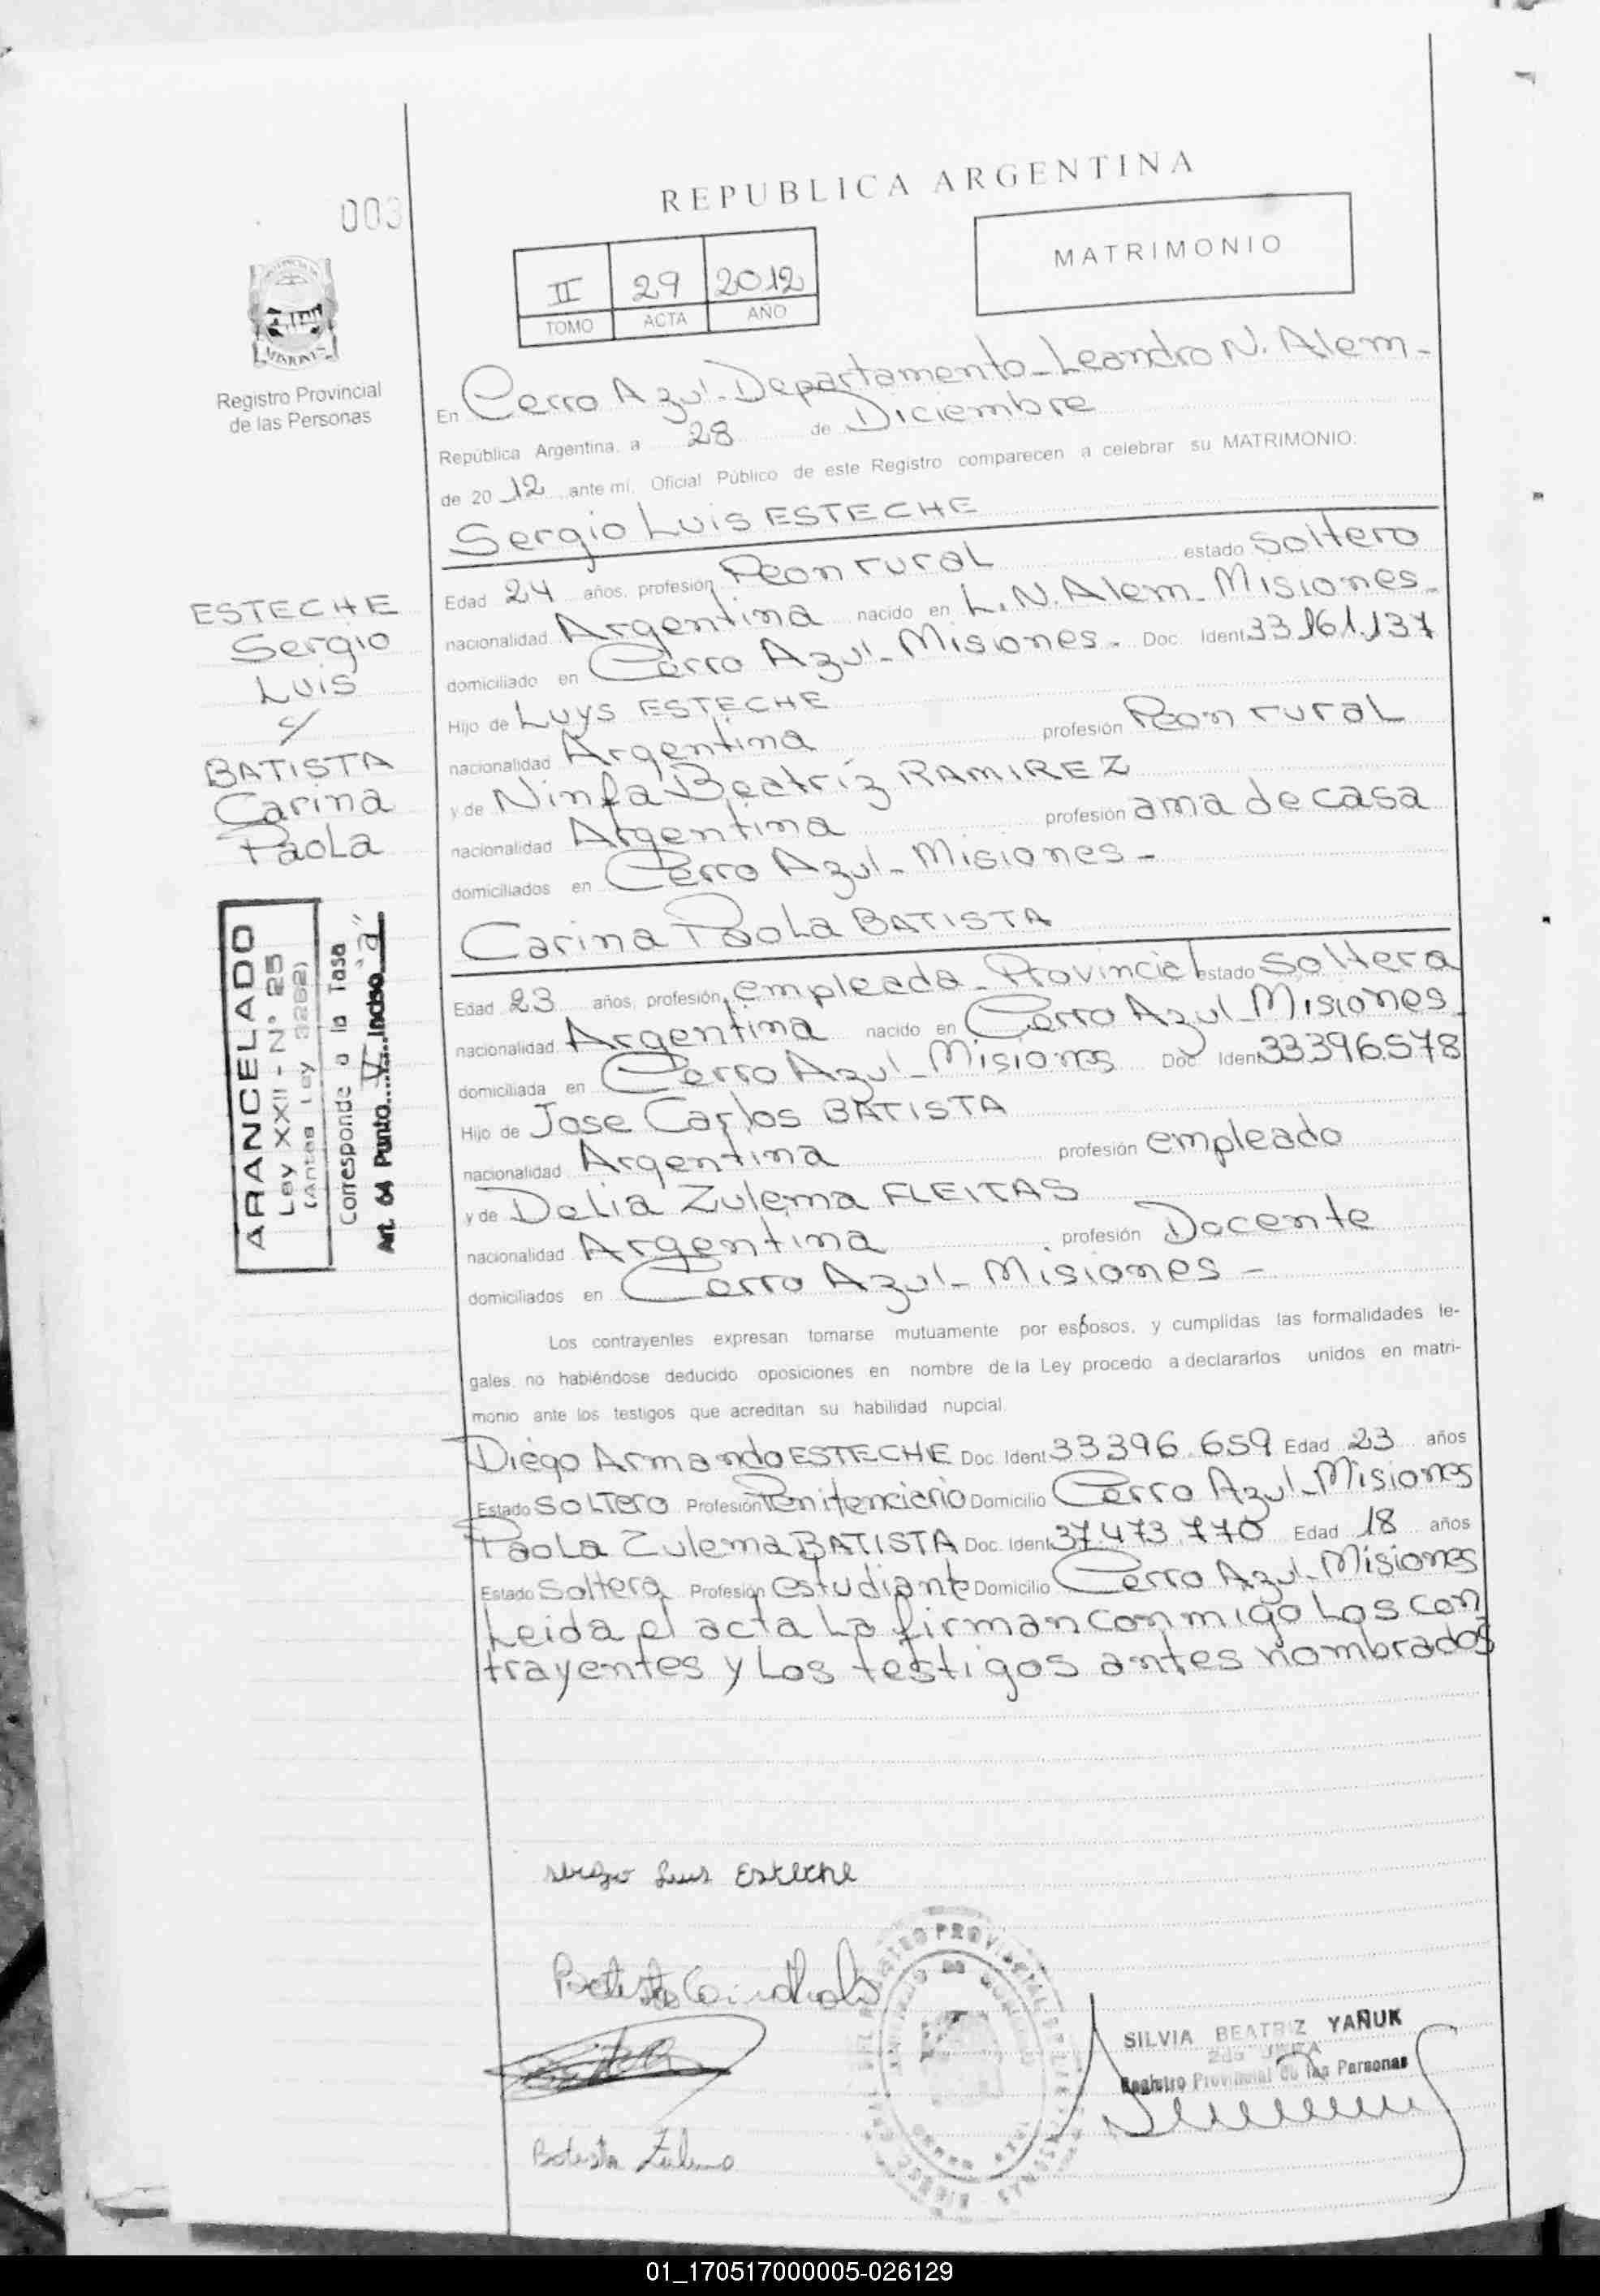 003
REPUBLICA ARGENTINA
II 29 2012
TOMO ACTA AÑO
MATRIMONIO
MISIONES
Registro Provincial
de las Personas
En Cerro Azul - Departamento - Leandro N. Alem -
República Argentina, a 28 de Diciembre
de 2012 ante mi, Oficial Público de este Registro comparecen a celebrar su MATRIMONIO:
Sergio Luis ESTECHE
Edad 24 años, profesión Peon rural estado Soltero
nacionalidad Argentina nacido en L. N. Alem - Misiones -
domiciliado en Cerro Azul - Misiones - Doc. Ident. 33.161.137
Hijo de Luys ESTECHE
nacionalidad Argentina profesión Peon rural
y de Ninfa Beatríz RAMIREZ
nacionalidad Argentina profesión ama de casa
domiciliados en Cerro Azul - Misiones -
Carina Paola BATISTA
Edad 23 años, profesión empleada - Provincial estado Soltera
nacionalidad Argentina nacido en Cerro Azul - Misiones -
domiciliada en Cerro Azul - Misiones Doc. Ident. 33396.578
Hijo de Jose Carlos BATISTA
nacionalidad Argentina profesión empleado
y de Delia Zulema FLEITAS
nacionalidad Argentina profesión Docente
domiciliados en Cerro Azul - Misiones -
Los contrayentes expresan tomarse mutuamente por esposos, y cumplidas las formalidades le-
gales, no habiéndose deducido oposiciones en nombre de la Ley procedo a declararlos unidos en matri-
monio ante los testigos que acreditan su habilidad nupcial.
Diego Armando ESTECHE Doc. Ident. 33396.659 Edad 23 años
Estado SOLTERO Profesión Penitenciario Domicilio Cerro Azul - Misiones
Paola Zulema BATISTA Doc. Ident. 37.473.770 Edad 18 años
Estado Soltera Profesión estudiante Domicilio Cerro Azul - Misiones
Leida el acta la firman conmigo los con
trayentes y los testigos antes nombrados
ESTECHE
Sergio
Luis
c/
BATISTA
Carina
Paola
ARANCELADO
Ley XXII - N° 25
(Antes Ley 3262)
Corresponde a la Tasa
Art. 64 Punto V Inciso "a"
Sergio Luis Esteche
Batista Carina Paola
Batista Zulema
SILVIA BEATRIZ YAÑUK
Registro Provincial de las Personas
01_170517000005-026129